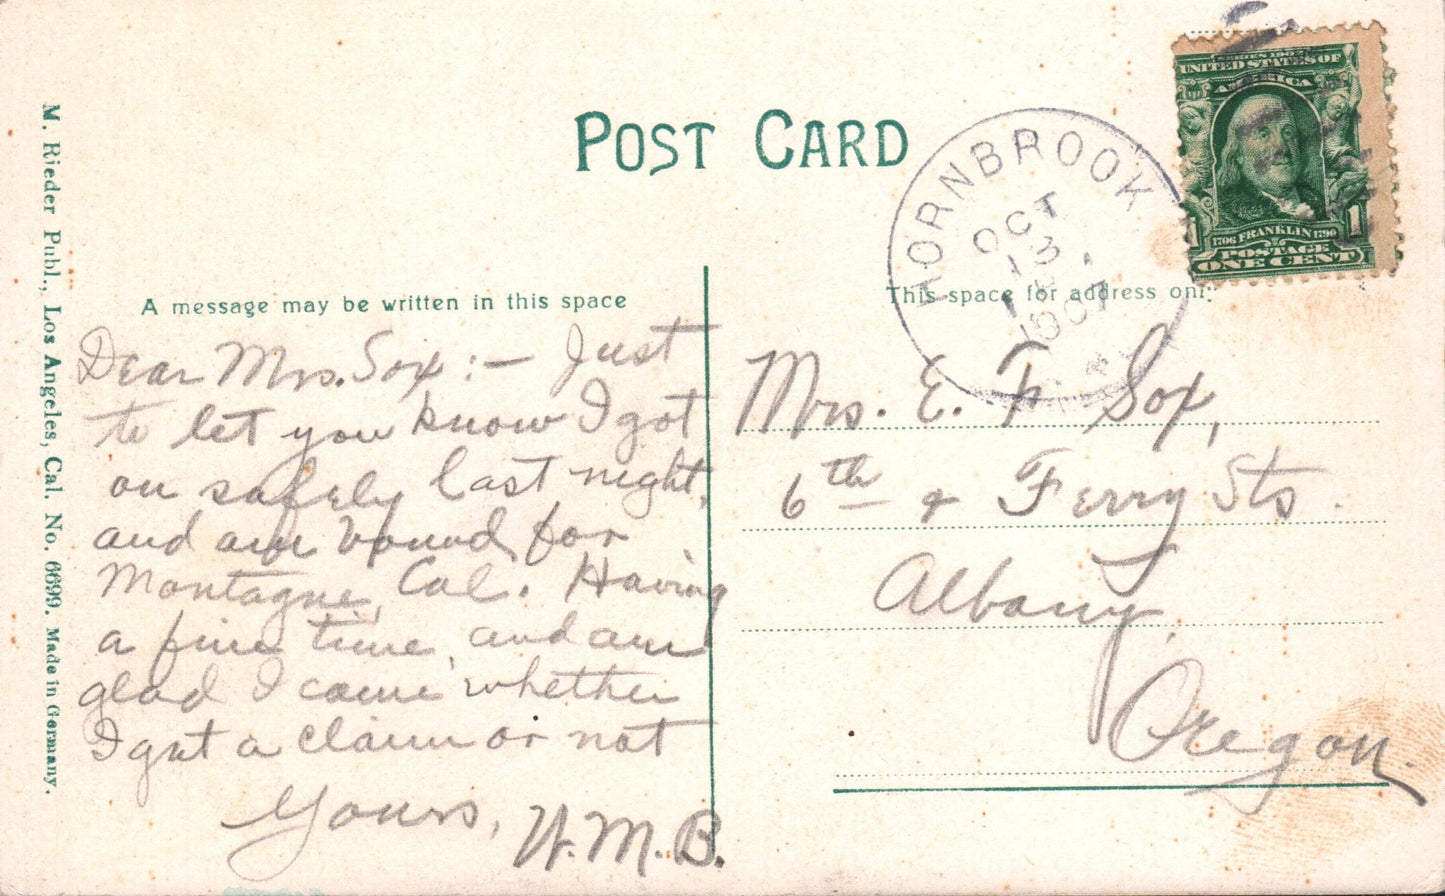 POST CARD
M. Rieder Publ., Los Angeles, Cal. No. 6699. Made in Germany.
A message may be written in this space
Dear Mrs. Sox :- Just
to let you know I got
on safely last night,
and am bound for
Montague, Cal. Having
a fine time, and am
glad I came whether
I get a claim or not
Yours, W. M. B.
HORNBROOK
OCT
13
1907
SERIES 1902
UNITED STATES OF
AMERICA
1706 FRANKLIN 1790
1 1
POSTAGE
ONE CENT
This space for address only
Mrs. E. F. Sox,
6th & Ferry Sts.
Albany,
Oregon.